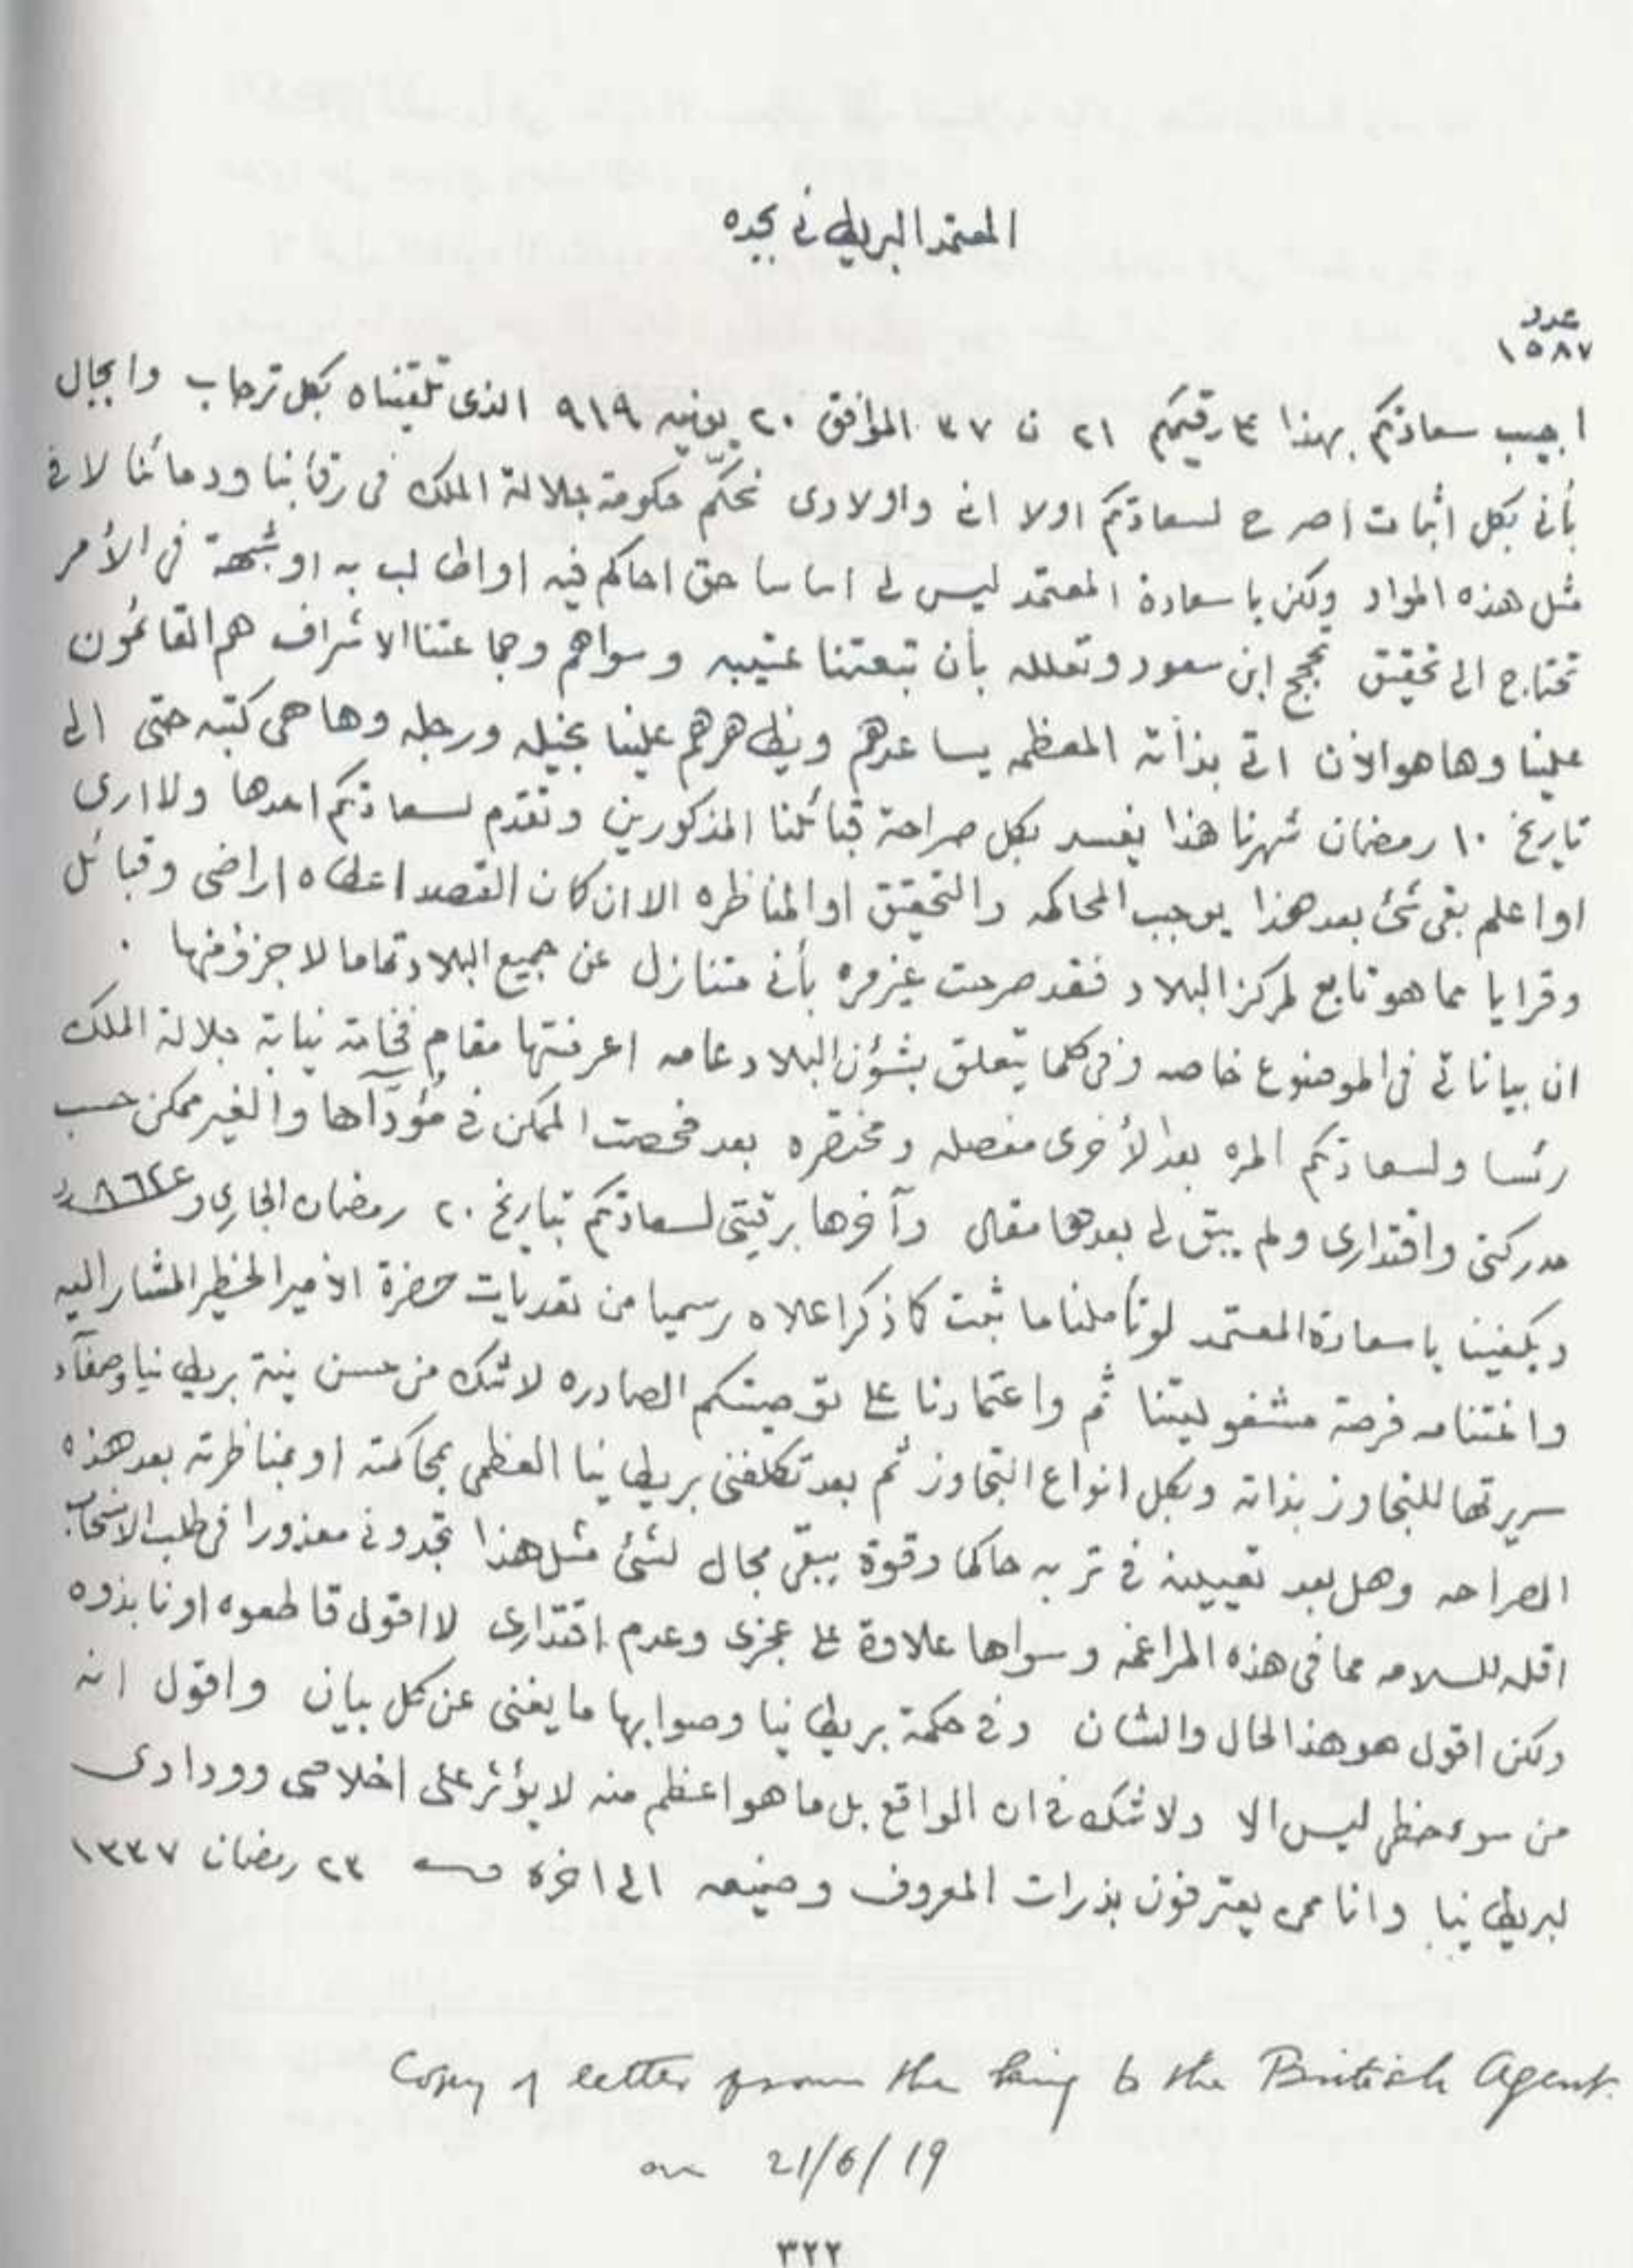 المعتمد البريطاني بجده
عدد
١٥٨٧
اجيب سعادتكم بهذا على رقيمكم ٢١ ن ٣٧ الموافق ٢٠ يونيه ٩١٩ الذى تلقيناه بكل ترحاب وابجال
بأنى بكل اثبات اصرح لسعادتكم اولا انى واولادى نحكّم حكومة جلالة الملك فى رقابنا ودمائنا لا فى
مثل هذه المواد ولكن يا سعادة المعتمد ليس لى اساسا حق احاكم فيه او اطالب به او شبهة فى الأمر
تحتاج الى تحقيق تحجج ابن سعود وتعلله بأن تبعتنا عتيبه وسواهم وجماعتنا الاشراف هم القائمون
علينا وها هو الأن اتى بذاته المعظمه يساعدهم ويظاهرهم علينا بخيله ورجله وها هى كتبه حتى الى
تاريخ ١٠ رمضان شهرنا هذا يفسد بكل صراحة قبائلنا المذكورين ونقدم لسعادتكم احدها ولا ارى
او اعلم بقى شئ بعد هذا يوجب المحاكمه والتحقيق او المناظره الا ان كان القصد اعطاه اراضى وقبائل
وقرايا مما هو تابع لمركز البلاد فقد صرحت غيزمره بأنى متنازل عن جميع البلاد تماما لا جزؤ منها .
ان بياناتى فى الموضوع خاصه وفى كلما يتعلق بشؤن البلاد عامه اعرفتها مقام فخامة نيابة جلالة الملك
رئسا ولسعادتكم المره بعد الأخرى مفصله ومختصره بعد فحصت الممكن فى مؤدّآها والغير ممكن حسب
مدركتى واقتدارى ولم يبق لى بعدها مقال وآخرها برقيتى لسعادتكم بتاريخ ٢٠ رمضان الجارى و
ويكفينا يا سعادة المعتمد لو تأملنا ما ثبت كما ذكر اعلاه رسميا من تعديات حضرة الأمير الخطير المشار اليه
واغتنامه فرصة مشغوليتنا ثم واعتمادنا على توصيتكم الصادره لا شك من حسن نية بريطانيا وصفآء
سريرتها للتجاوز بذاته وبكل انواع التجاوز ثم بعد تكلفنى بريطانيا العظمى بمحاكمته او بمناظرته بعد هذه
الصراحه وهل بعد تعيينه فى تربه حاكما وقوة يبقى مجال لشئ مثل هذا تجدونى معذورا فى طلب الانسحاب
اقله للسلامه مما فى هذه المراغمه وسواها علاوة على عجزى وعدم اقتدارى لا اقول قاطعوه او نابذوه
ولكن اقول هو هذا الحال والشان وفى حكمة بريطانيا وصوابها ما يغنى عن كل بيان واقول انه
من سوء حظى ليس الا ولا شك فى ان الواقع بل ما هو اعظم منه لا يؤثر على اخلاصى وودادى
لبريطانيا وانا ممن يعترفون بذرات المعروف وصنيعه الى اخره ٢٣ رمضان ١٣٣٧
Copy of letter from the King to the British Agent.
on 21/6/19
٣٢٢